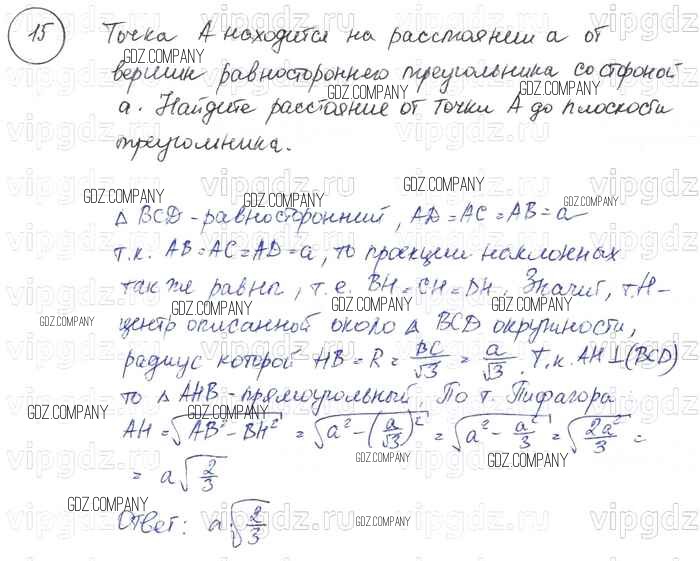 15 Точка А находится на расстоянии а от
вершин равностороннего треугольника со стороной
а. Найдите расстояние от точки А до плоскости
треугольника.
△ BCD - равносторонний, AD = AC = AB = a
т.к. AB = AC = AD = a, то проекции наклонных
так же равны, т.е. BH = CH = DH. Значит, т.H -
центр описанной около △ BCD окружности,
радиус которой HB = R = BC/√3 = a/√3. Т.к. AH ⊥ (BCD)
то △ AHB - прямоугольный. По т. Пифагора
AH = √(AB² - BH²) = √(a² - (a/√3)²) = √(a² - a²/3) = √(2a²/3) =
= a√(2/3)
Ответ: a√(2/3)
GDZ.COMPANY
vipgdz.ru